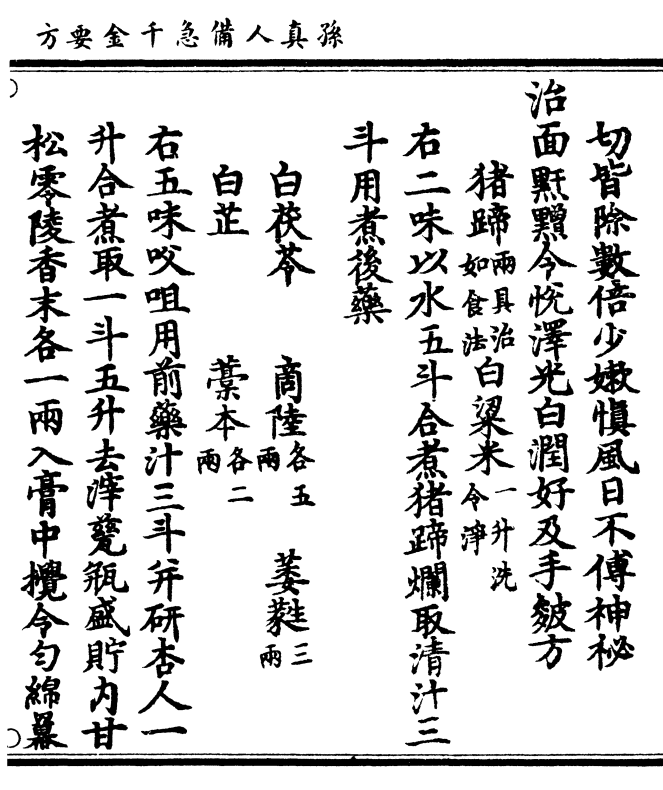 孫真人備急千金要方
切皆除數倍少嫩慎風日不傅神秘
治面䵟䵳令悅澤光白潤好及手皴方
猪蹄兩具治如食法白粱米一升洗令淨
右二味以水五斗合煮猪蹄爛取清汁三
斗用煮後藥
白茯苓 商陸各五兩 萎蕤三兩
白芷 藁本各二兩
右五味㕮咀用前藥汁三斗并研杏人一
升合煮取一斗五升去滓甆瓶盛貯內甘
松零陵香末各一兩入膏中攪令勻綿羃